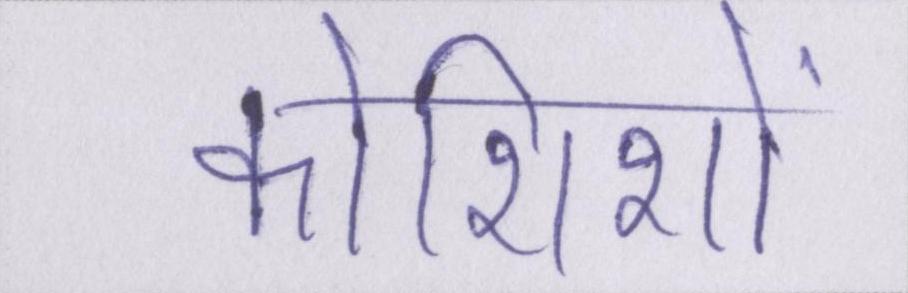 कोशिशों